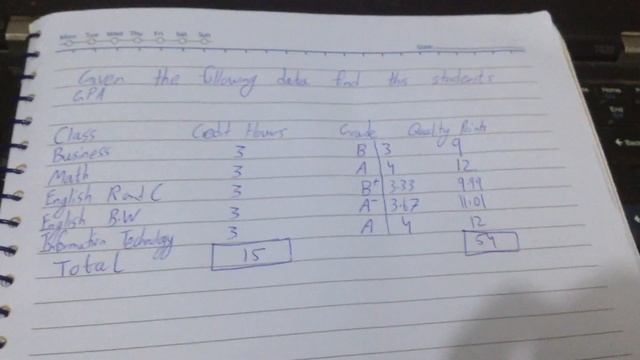 Mon Tue Wed Thu Fri Sat Sun
Date
Given the following data find this students
GPA
Class Credit Hours Grade Quality Points
Business 3 B 3 9
Math 3 A 4 12
English R and C 3 B+ 3.33 9.99
English B.W 3 A- 3.67 11.01
Information Technology 3 A 4 12
Total 15 54